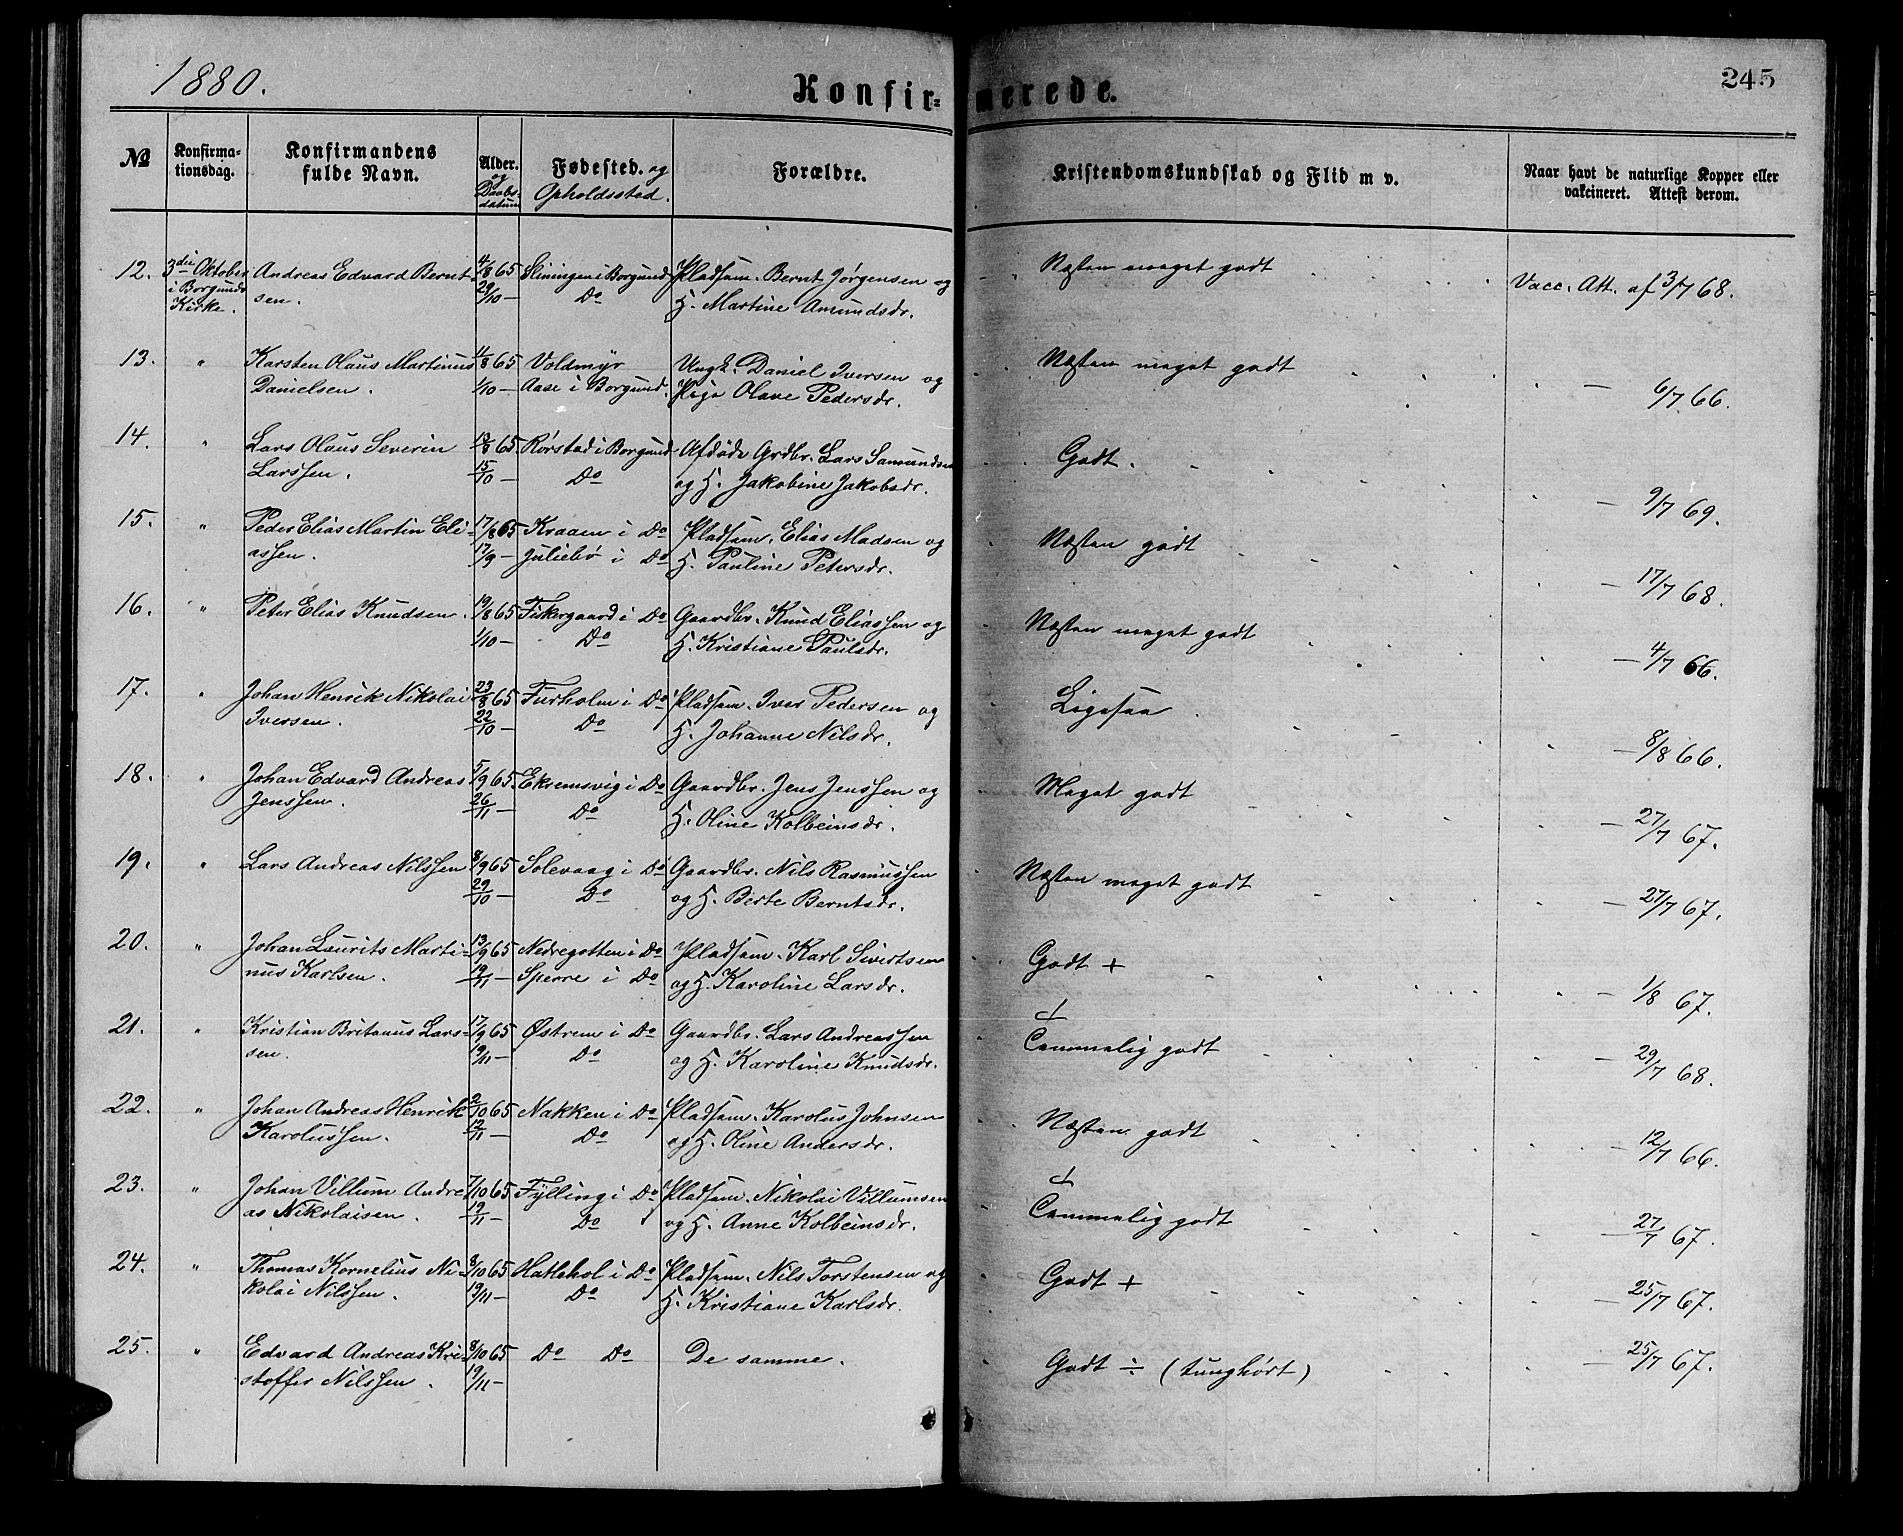 1880.
Konfir-
merede.
245
№
Konfirma-
tionsdag.
Konfirmandens
fulde Navn.
Alder.
og
Daabs-
datum
Fødested. og
Opholdssted.
Forældre.
Kristendomskundskab og Flid m v.
Naar havt de naturlige Kopper eller
vakcineret. Attest derom.
12. 3die Oktober Andreas Edvard Bernt- 4/8 65 Slinningen i Borgund Pladsm. Bernt Jørgensen og Næsten meget godt Vacc. Att. af 3/7 68.
i Borgunds sen. 29/10 — Do H. Martine Amundsdr.
Kirke.
13. " Karsten Olaus Martinus 4/8 65 Voldmyr Ungk. Daniel Iversen og Næsten meget godt — 6/7 66.
Danielsen. 1/10 — Aase i Borgund. Pige Olave Pedersdr.
14. " Lars Olaus Severin 13/8 65 Rørstad i Borgund Afdøde Grdbr. Lars Samundsen Godt. — 9/7 69.
Larssen. 15/10 — Do og H. Jakobine Jakobsdr.
15. " Peder Elias Martin Eli- 17/8 65 Kraaen i Do Pladsm. Elias Madsen og Næsten godt — 17/7 68.
assen. 17/9 — Juliebø i Do H. Pauline Petersdr.
16. " Peter Elias Knudsen. 19/8 65 Fiskergaard i Do Gaardbr. Knud Eliassen og Næsten meget godt — 4/7 66.
1/10 — Do H. Kristiane Paulsdr.
17. " Johan Henrik Nikolai 23/8 65 Furholm i Do Pladsm. Iver Pedersen og Ligesaa — 8/8 66.
Iversen. 22/10 — Do H. Johanne Nilsdr.
18. " Johan Edvard Andreas 5/9 65 Ekremsvig i Do Gaardbr. Jens Jenssen og Meget godt — 27/7 67.
Jenssen. 26/11 — Do H. Oline Kolbeinsdr.
19. " Lars Andreas Nilssen 8/9 65 Solevaag i Do Gaardbr. Nils Rasmussen Næsten meget godt — 27/7 67.
29/10 — Do og H. Berte Berntsdr.
20. " Johan Laurits Marti- 13/9 65 Nedregotten i Do Pladsm. Karl Sivertsen Godt + — 1/8 67.
nus Karlsen. 19/11 — Sperre i Do og H. Karoline Larsdr.
21. " Kristian Britanus Lars- 17/9 65 Østrem i Do Gaardbr. Lars Andreassen Temmelig godt — 29/7 68.
sen. 19/11 — Do og H. Karoline Knudsdr.
22. " Johan Andreas Henrik 2/10 65 Nakken i Do Pladsm. Karolus Johnsen Næsten godt — 12/7 66.
Karolussen. 12/11 — Do og H. Oline Andersdr.
23. " Johan Villum Andre- 7/10 65 Fylling i Do Pladsm. Nikolai Villumsen Temmelig godt — 27/7 67.
as Nikolaisen. 19/11 — Do og H. Anne Kolbeinsdr.
24. " Thomas Kornelius Ni- 8/10 65 Hatlehol i Do Pladsm. Nils Torstensen og Godt + — 25/7 67.
kolai Nilssen. 19/11 — Do H. Kristiane Karlsdr.
25. " Edvard Andreas Kri- 8/10 65 Do Do De samme. Godt ÷ (tunghørt) — 25/7 67.
stoffer Nilssen. 19/11 —